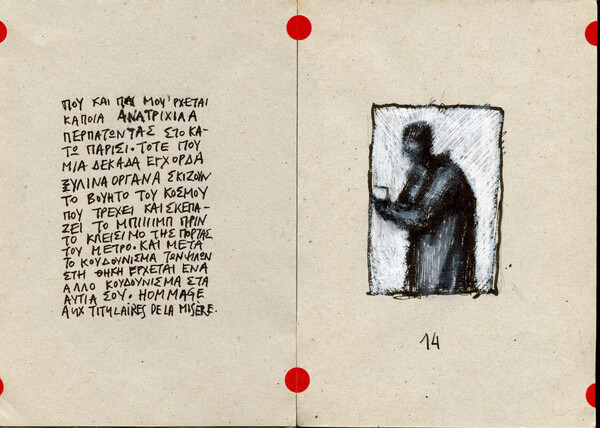 ΠΟΥ ΚΑΙ ΠΑ ΜΟΥ'ΡΧΕΤΑΙ
ΚΑΠΟΙΑ ΑΝΑΤΡΙΧΙΛΑ
ΠΕΡΠΑΤΩΝΤΑΣ ΣΤΟ ΚΑ-
ΤΩ ΠΑΡΙΣΙ. ΤΟΤΕ ΠΟΥ
ΜΙΑ ΔΕΚΑΔΑ ΕΓΧΟΡΔΑ
ΞΥΛΙΝΑ ΟΡΓΑΝΑ ΣΚΙΖΟΥΝ
ΤΟ ΒΟΥΗΤΟ ΤΟΥ ΚΟΣΜΟΥ
ΠΟΥ ΤΡΕΧΕΙ ΚΑΙ ΣΚΕΠΑ-
ΖΕΙ ΤΟ ΜΠΙΙΙΙΜΠ ΠΡΙΝ
ΤΟ ΚΛΕΙΣΙΜΟ ΤΗΣ ΠΟΡΤΑΣ
ΤΟΥ ΜΕΤΡΟ. ΚΑΙ ΜΕΤΑ
ΤΟ ΚΟΥΔΟΥΝΙΣΜΑ ΤΩΝ ΨΙΛΩΝ
ΣΤΗ ΘΗΚΗ ΕΡΧΕΤΑΙ ΕΝΑ
ΑΛΛΟ ΚΟΥΔΟΥΝΙΣΜΑ ΣΤΑ
ΑΥΤΙΑ ΣΟΥ. HOMMAGE
AUX TITULAIRES DE LA MISÈRE.
14